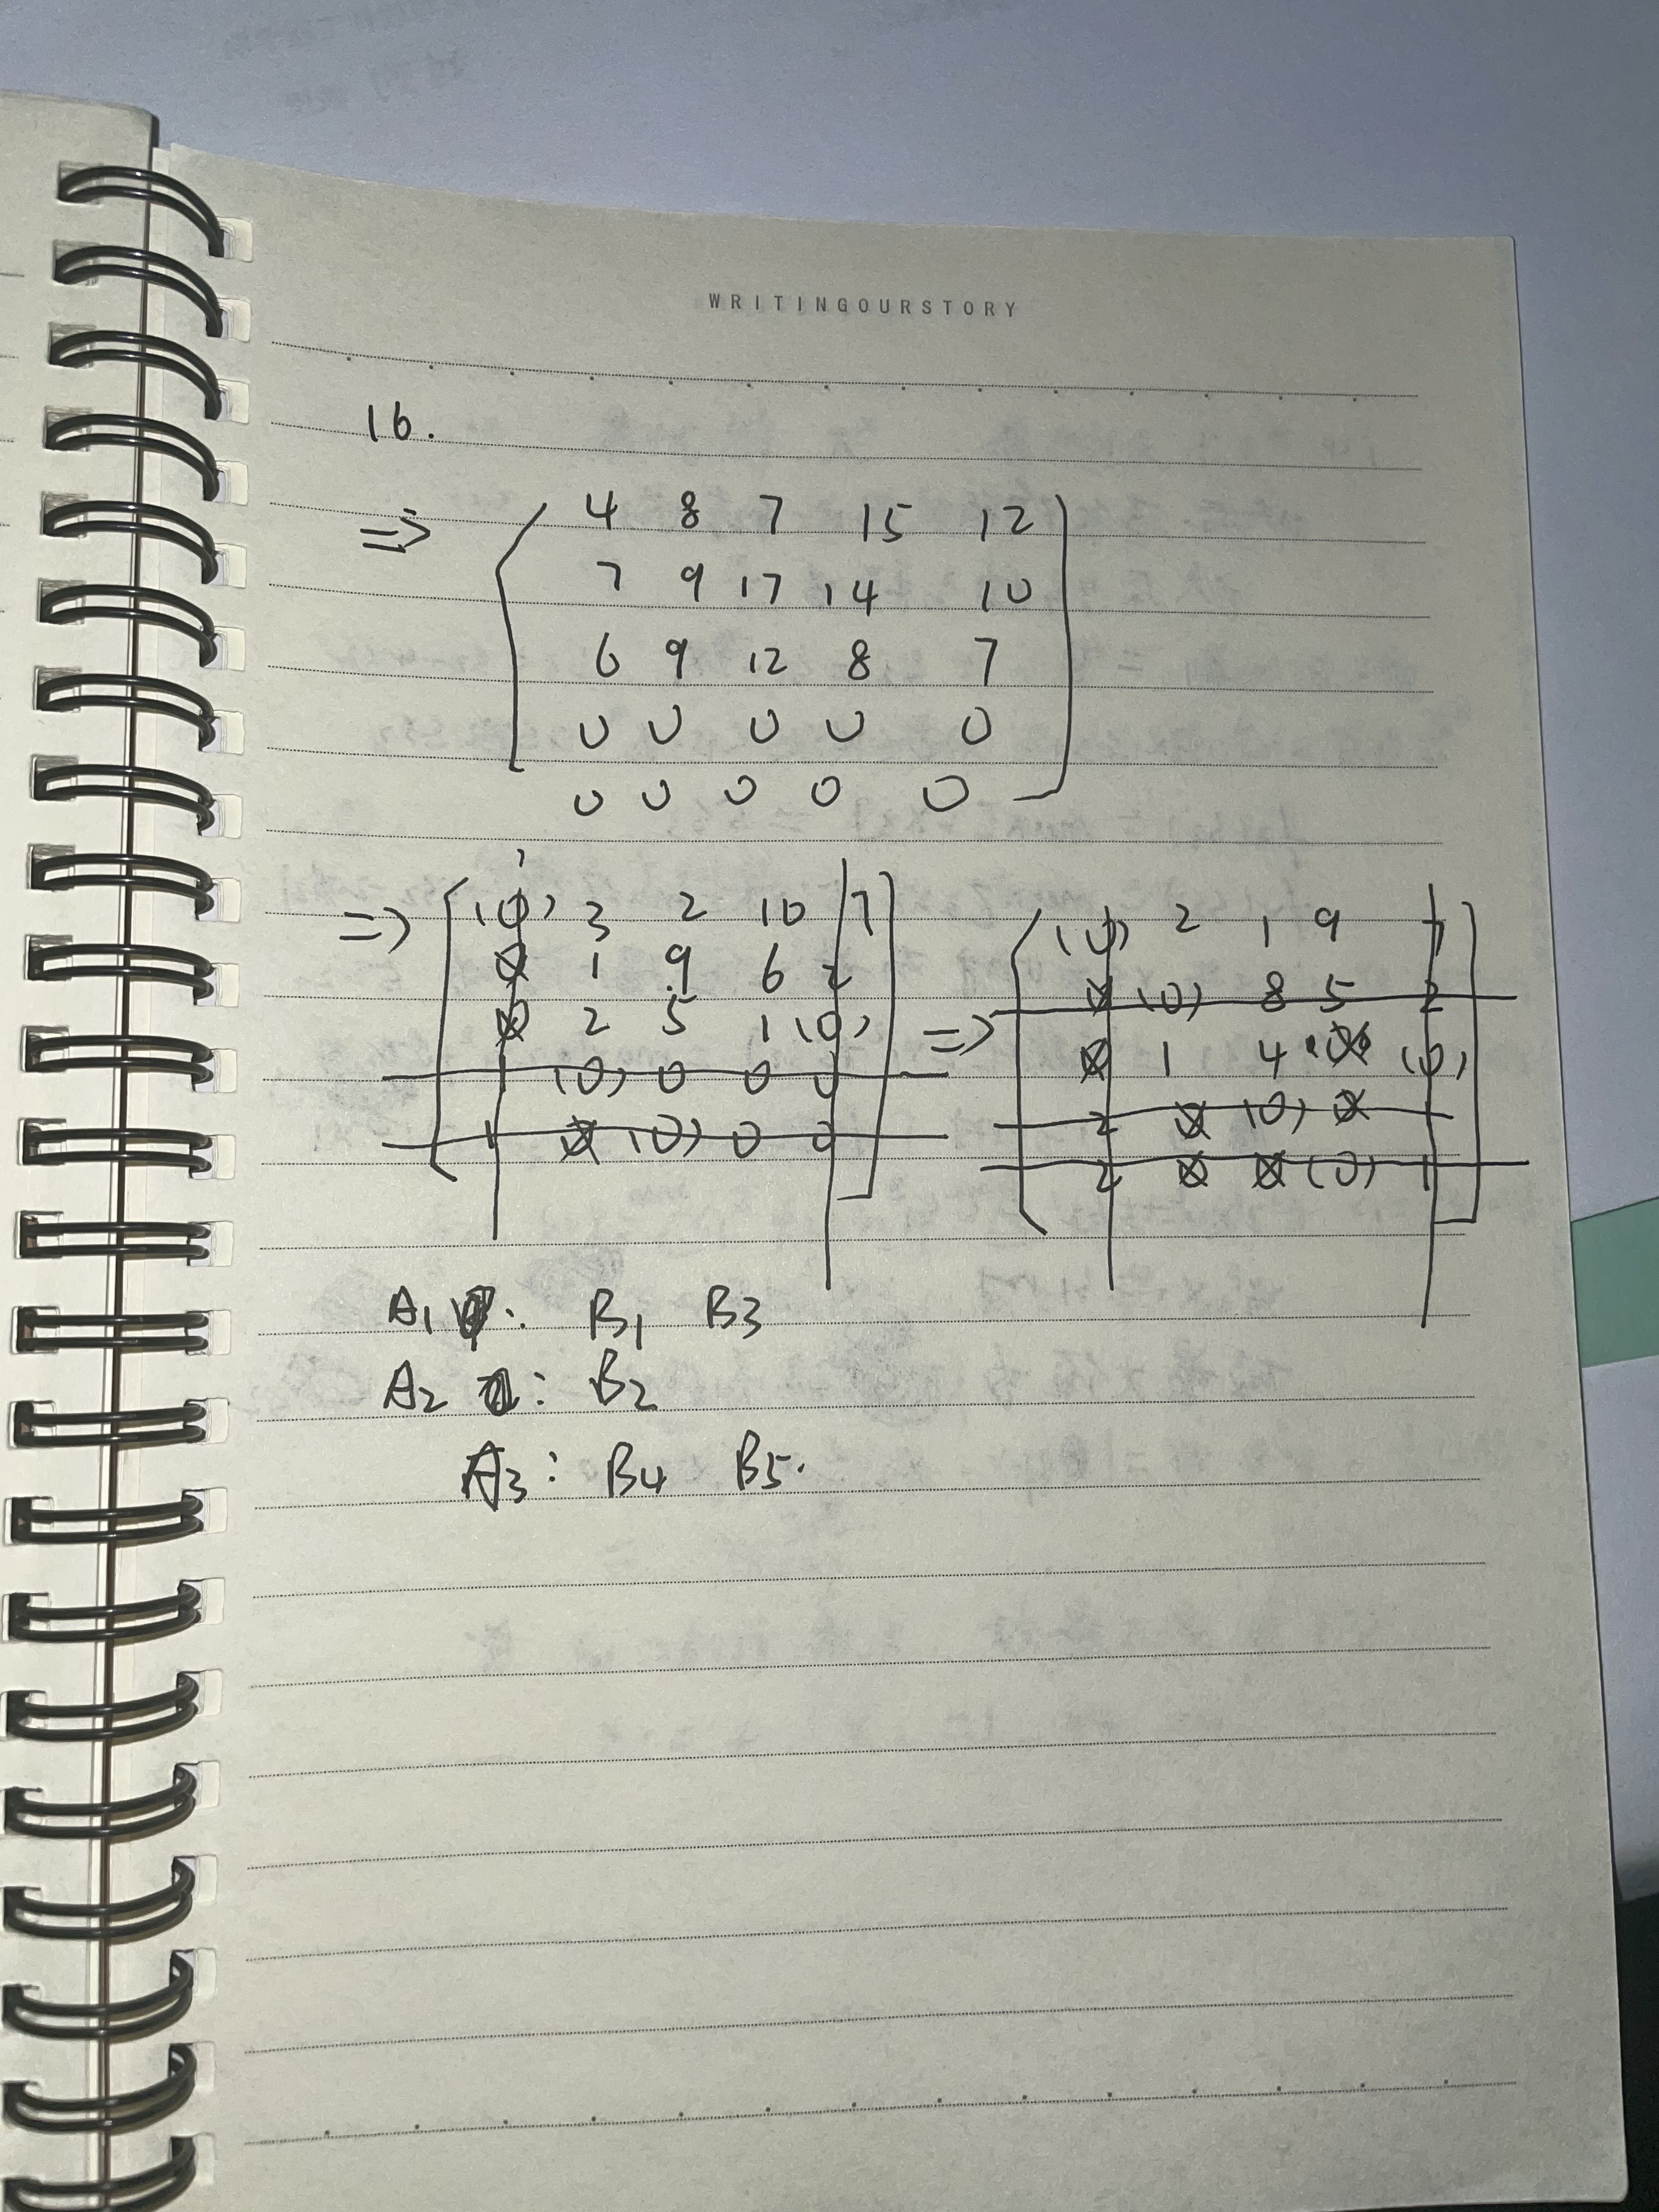 WRITINGOURSTORY
16.
⇒ 4 8 7 15 12
7 9 17 14 10
6 9 12 8 7
0 0 0 0 0
0 0 0 0 0
⇒ (0) 3 2 10 7
0 1 9 6 2
0 2 5 1 (0)
1 (0) 0 0 0
1 0 (0) 0 0
⇒ (0) 2 1 9 7
0 (0) 8 5 2
0 1 4 0 (0)
2 0 (0) 0 1
2 0 0 (0) 1
A1 : B1 B3
A2 : B2
A3 : B4 B5.